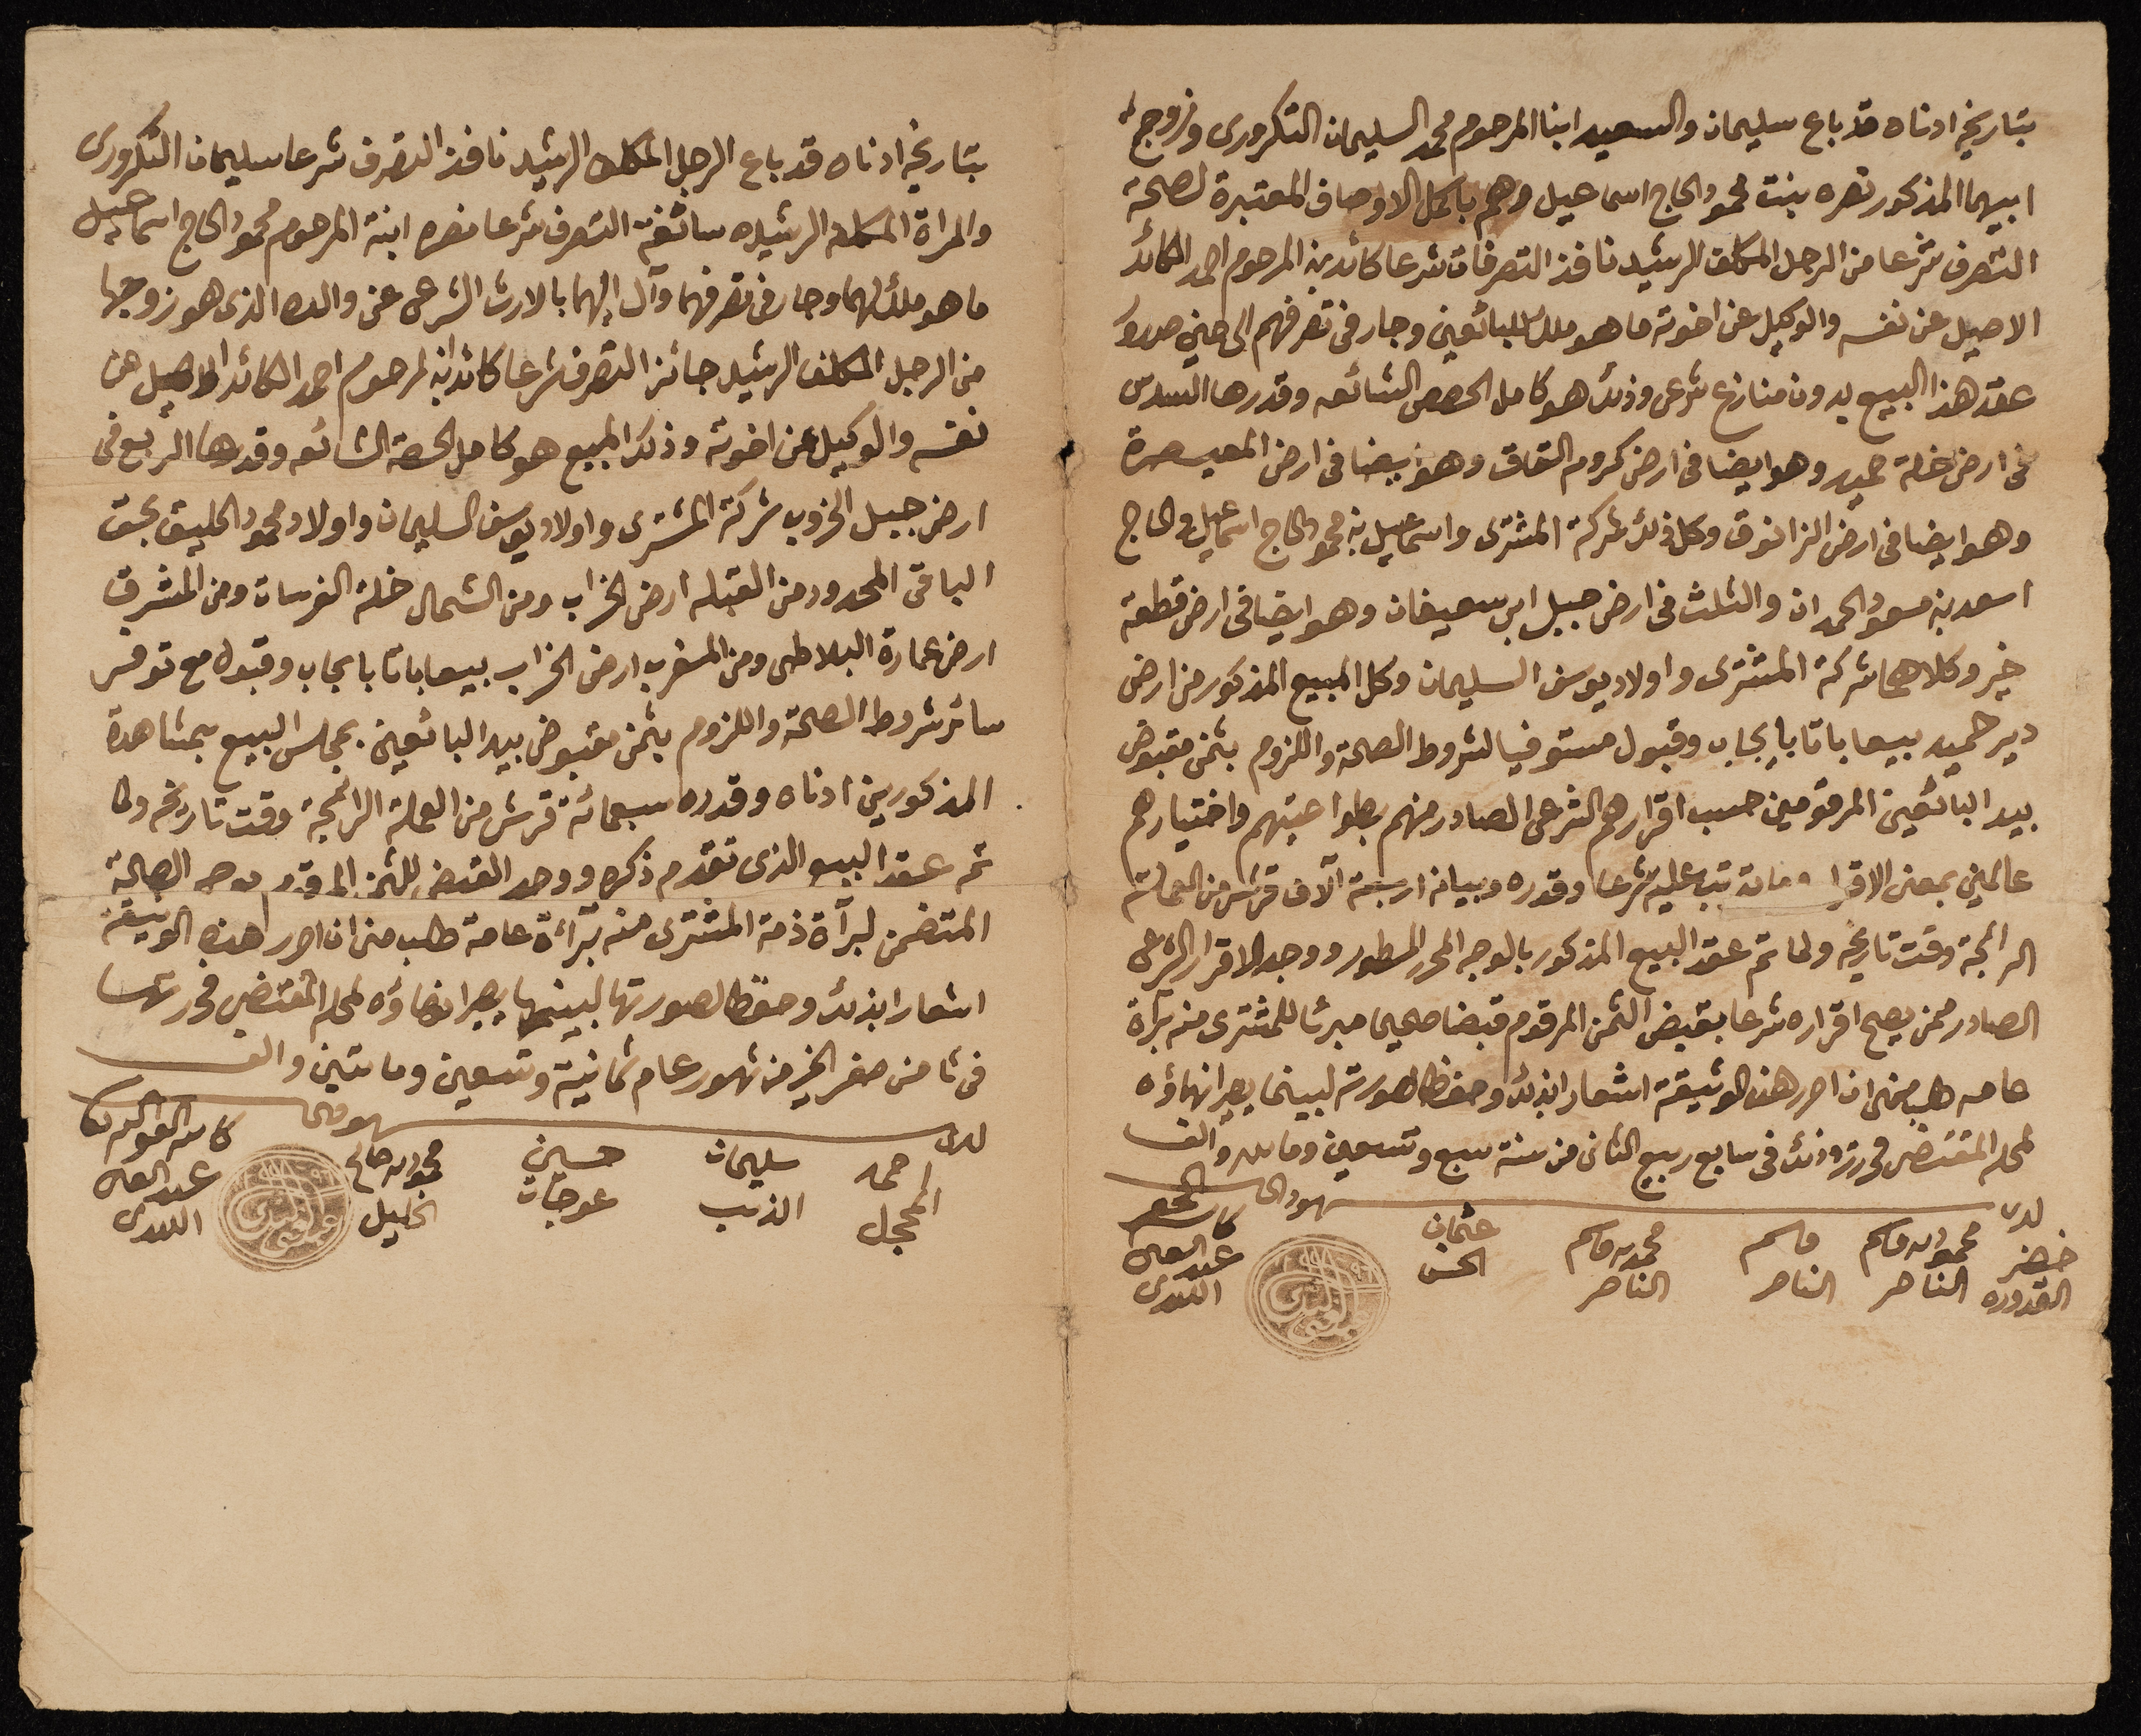 بتاريخ ادناه قد باع سليمان والسعيد ابنا المرحوم محمد السليمان التكروري وزوجة
ابيهما المذكور نصره بنت محمود الحاج اسماعيل وهم باكمل الاوصاف المعتبرة لصحة
التصرف شرعا من الرجل المكلف الرشيد نافذ التصرفات شرعا كائد بن المرحوم احمد الكائد
الاصيل عن نفسه والوكيل عن اخوته ما هو ملك للبائعين وجار في تصرفهم الى حين صدور
عقد هذا البيع بدون منازع شرعي وذلك هو كامل الحصص الشائعه وقدرها السدس
في ارض خلة حميد وهو ايضا في ارض كروم التفاق وهو ايضا في ارض المعيصرة
وهو ايضا في ارض الزانوق وكل ذلك شركة المشتري واسماعيل بن محمود الحاج اسماعيل والحاج
اسعد بن مسعود الحمدان والثلث في ارض جبل ابن سعيفان وهو ايضا في ارض قطعة
خير وكلاهما شركة المشتري واولاد يوسف السليمان وكل المبيع المذكور من ارض
دير حميد بيعا باتا بايجاب وقبول مستوفيا لشروط الصحة واللزوم بثمن مقبوض
بيد البائعين المرقومين حسب اقرارهم الشرعي الصادر منهم بطواعيتهم واختيارهم
عالمين بمعنى الاقرار وما يترتب عليه شرعا وقدره وبيانه اربعة آلاف قرش من العملة
الرائجة وقت تاريخه ولما تم عقد البيع المذكور بالوجه المحرر المسطور ووجد الاقرار الشرعي
الصادر ممن يصح اقراره شرعا بقبض الثمن المرقوم قبضا صحيحا مبرئا للمشتري منه برآة
عامه طلب مني ان احرر هذه الوثيقة اشعارا بذلك وحفظا لصورته لبينما يصير انهاؤه
لمحله المقتضى فحررته وذلك في سابع ربيع الثاني من سنة سبع وتسعين ومايتين والف
شهود الحال
لدى
خضر القدوره
محمود بن قاسم الناصر
قاسم الناصر
محمد بن قاسم الناصر
عثمان الحسن
كاتبه الحقير
عبد الغني
بتاريخه ادناه قد باع الرجل المكلف الرشيد نافذ التصرف شرعا سليمان التكروري
والمراة المكلفة الرشيده سائغة التصرف شرعا نصره ابنة المرحوم محمود الحاج اسماعيل
ما هو ملك لهما وجار في تصرفهما وآل اليهما بالارث الشرعي عن والده الذي هو زوجها
من الرجل المكلف الرشيد جائز التصرف شرعا كائد ابن المرحوم احمد الكائد الاصيل عن
نفسه والوكيل عن اخوته وذلك المبيع هو كامل الحصة الشائعه وقدرها الربع في
ارض جبل الخروب شركة المشتري واولاد يوسف السليمان واولاد محمود الحليق بحق
الباقي المحدود من القبله ارض الخراب ومن الشمال خلة الفرسات ومن المشرق
ارض عمارة البلاطي ومن المغرب ارض الخراب بيعا باتا بايجاب وقبول مع توفر
سائر شروط الصحة واللزوم بثمن مقبوض بيد البائعين بمجلس البيع بمشاهدة
المذكورين ادناه وقدره سبعمائة قرش من العملة الرائجة وقت تاريخه ولما
تم عقد البيع الذي تقدم ذكره ووجد القبض للثمن المرقوم بوجه الصحة
المتضمن لبرآة ذمة المشتري منه برآءة عامة طلب مني ان احرر هذه الوثيقة
اشعارا بذلك وحفظا لصورتها لبينما يصير انهاؤه لمحله المقتضى فحررتها
في ثامن صفر الخير من شهور عام ثمانية وتسعين ومايتين والف
شهود الحال
لدى
حمد المحجل
سليمان الذيب
حسين عوجان
محمود بن صالح الخليل
عبد الغني